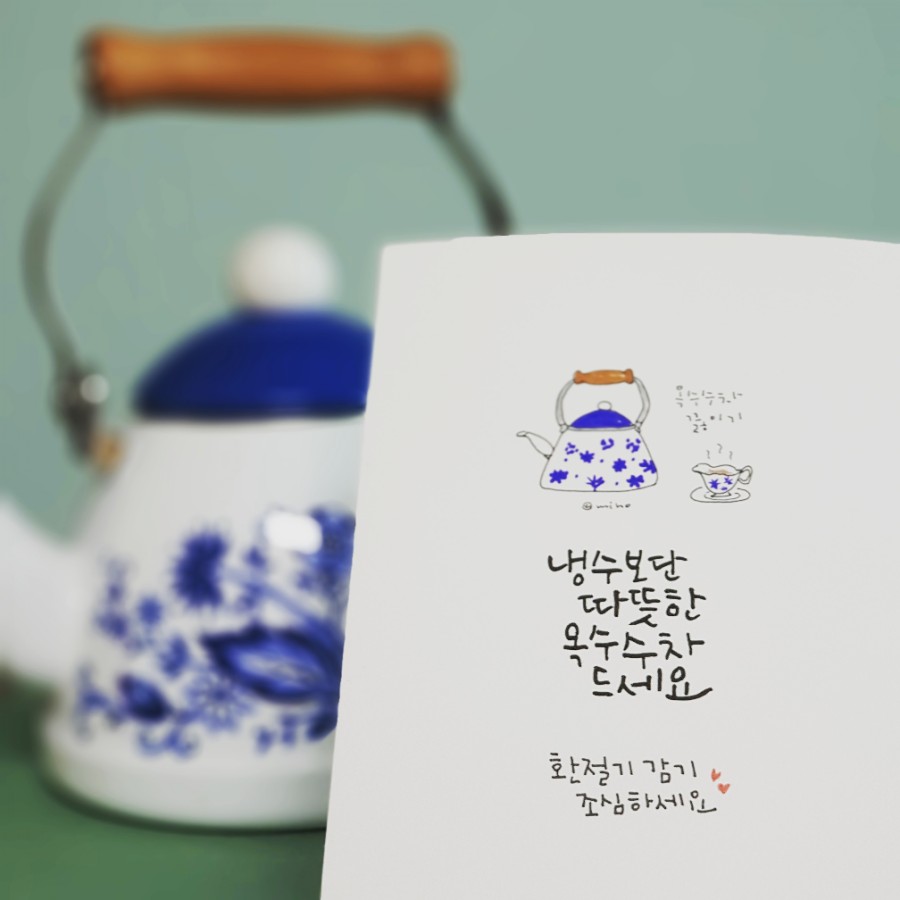 옥수수차
끓이기
@miho
냉수보단
따뜻한
옥수수차
드세요
환절기 감기
조심하세요